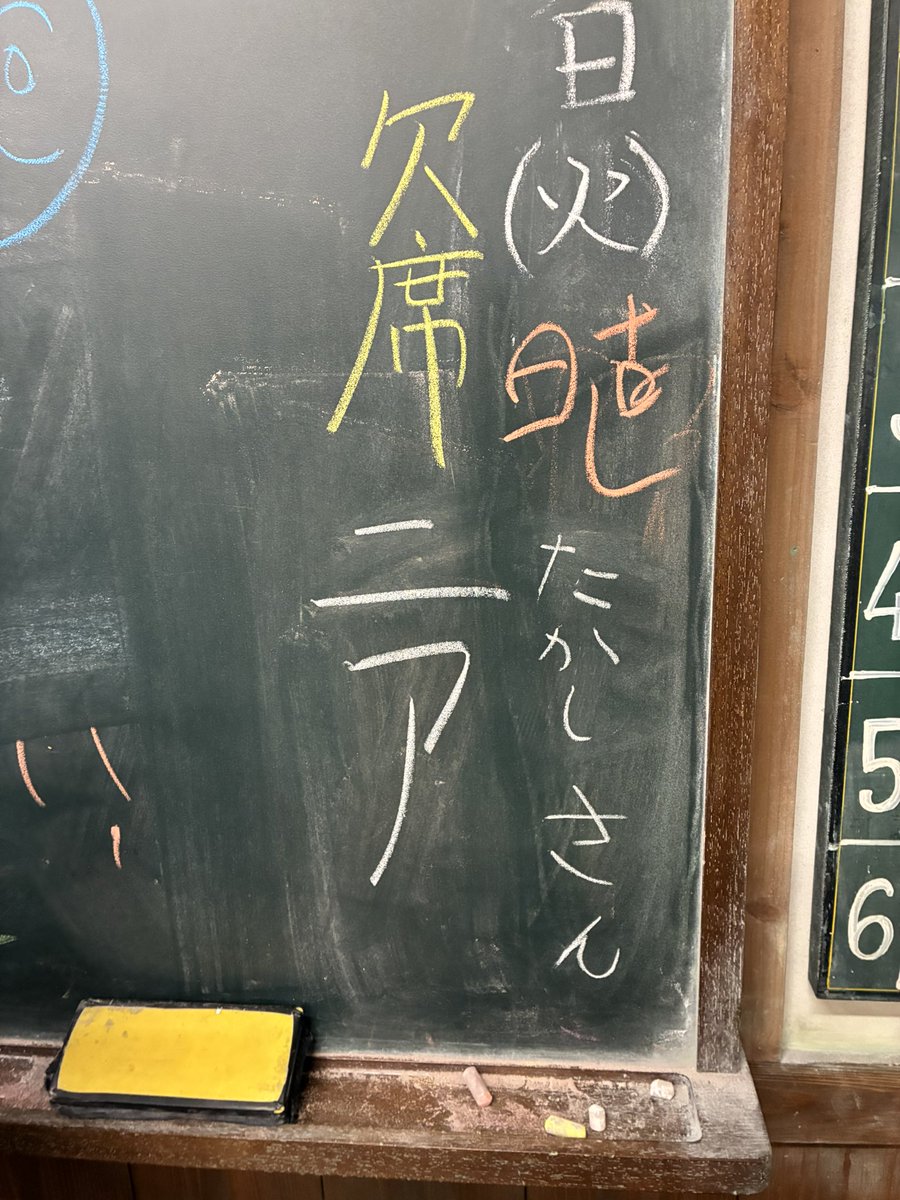 日(火) 日直 たかし さん
欠席 ニア
4
5
6